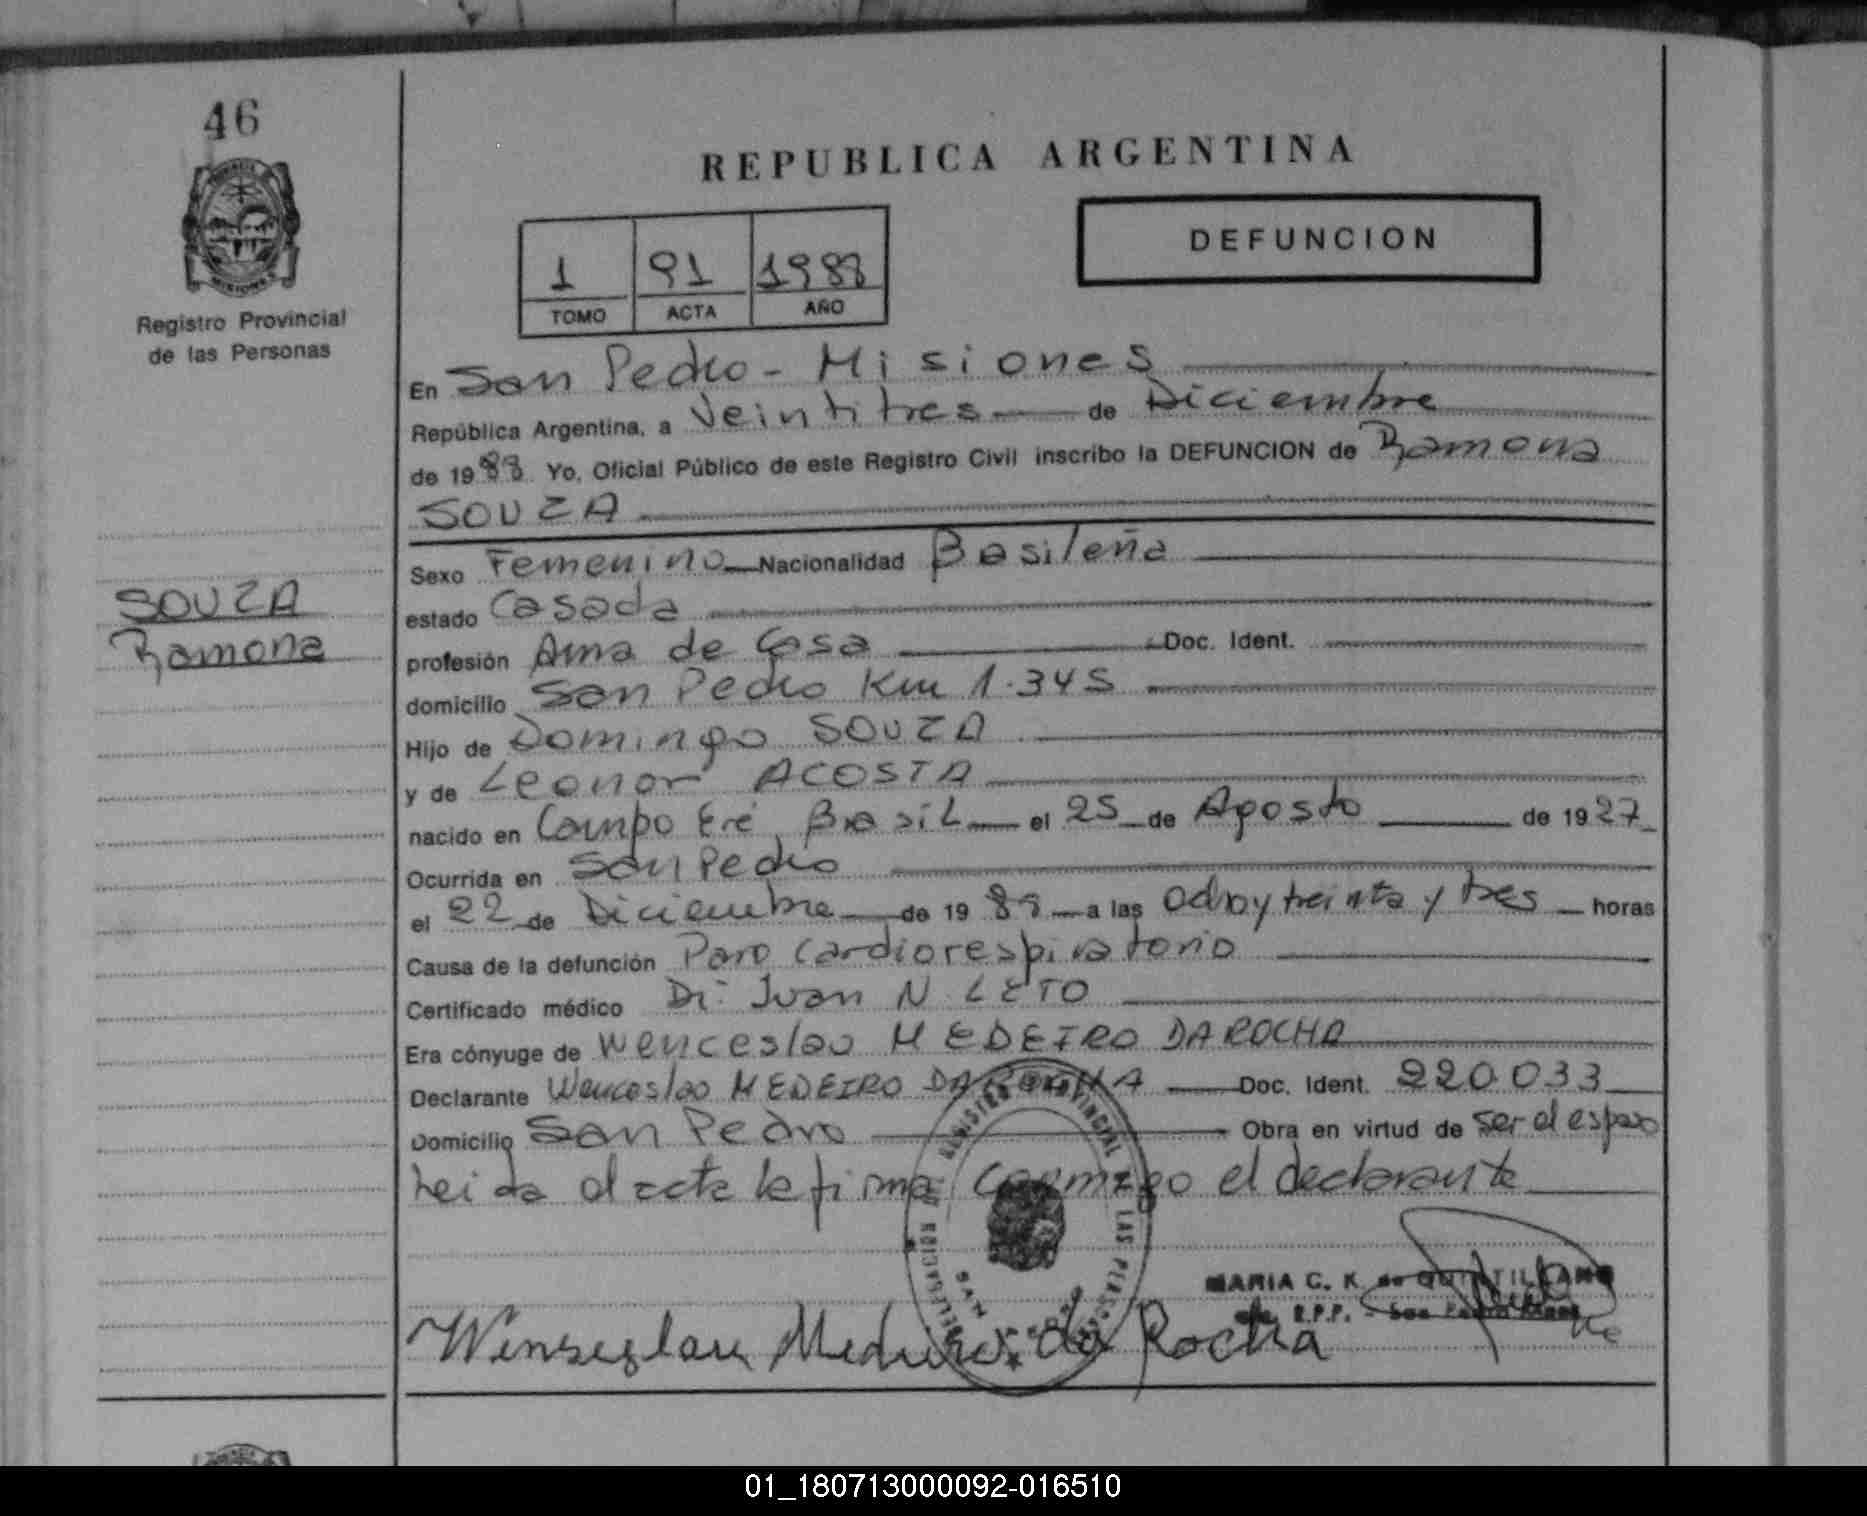 46
REPUBLICA ARGENTINA
DEFUNCION
1 91 1988
TOMO ACTA AÑO
Registro Provincial
de las Personas
En San Pedro - Misiones
República Argentina, a Veintitres de Diciembre
de 1988 Yo, Oficial Público de este Registro Civil inscribo la DEFUNCION de Ramona
SOUZA
Sexo Femenino Nacionalidad Basileña
SOUZA
Ramona
estado Casada
profesión Ama de Casa Doc. Ident.
domicilio San Pedro Km 1.345
Hijo de Domingo SOUZA
y de Leonor ACOSTA
nacido en Campo Eré, Brasil el 25 de Agosto de 1927
Ocurrida en San Pedro
el 22 de Diciembre de 19 a las ocho y treinta y tres horas
Causa de la defunción Paro cardiorespiratorio
Certificado médico Dr. Juan N LETO
Era cónyuge de Wenceslao MEDEIRO DA ROCHA
Declarante Wenceslao MEDEIRO DA ROCHA Doc. Ident. 220.033
Domicilio San Pedro Obra en virtud de ser el esposo
Leida el acta la firma conmigo el declarante
REGISTRO PROVINCIAL LAS PERSONAS DELEGACION SAN
MARIA C. K. de QUINTILLANO
R.P.P. - San Pedro
da Rocha
01_180713000092-016510